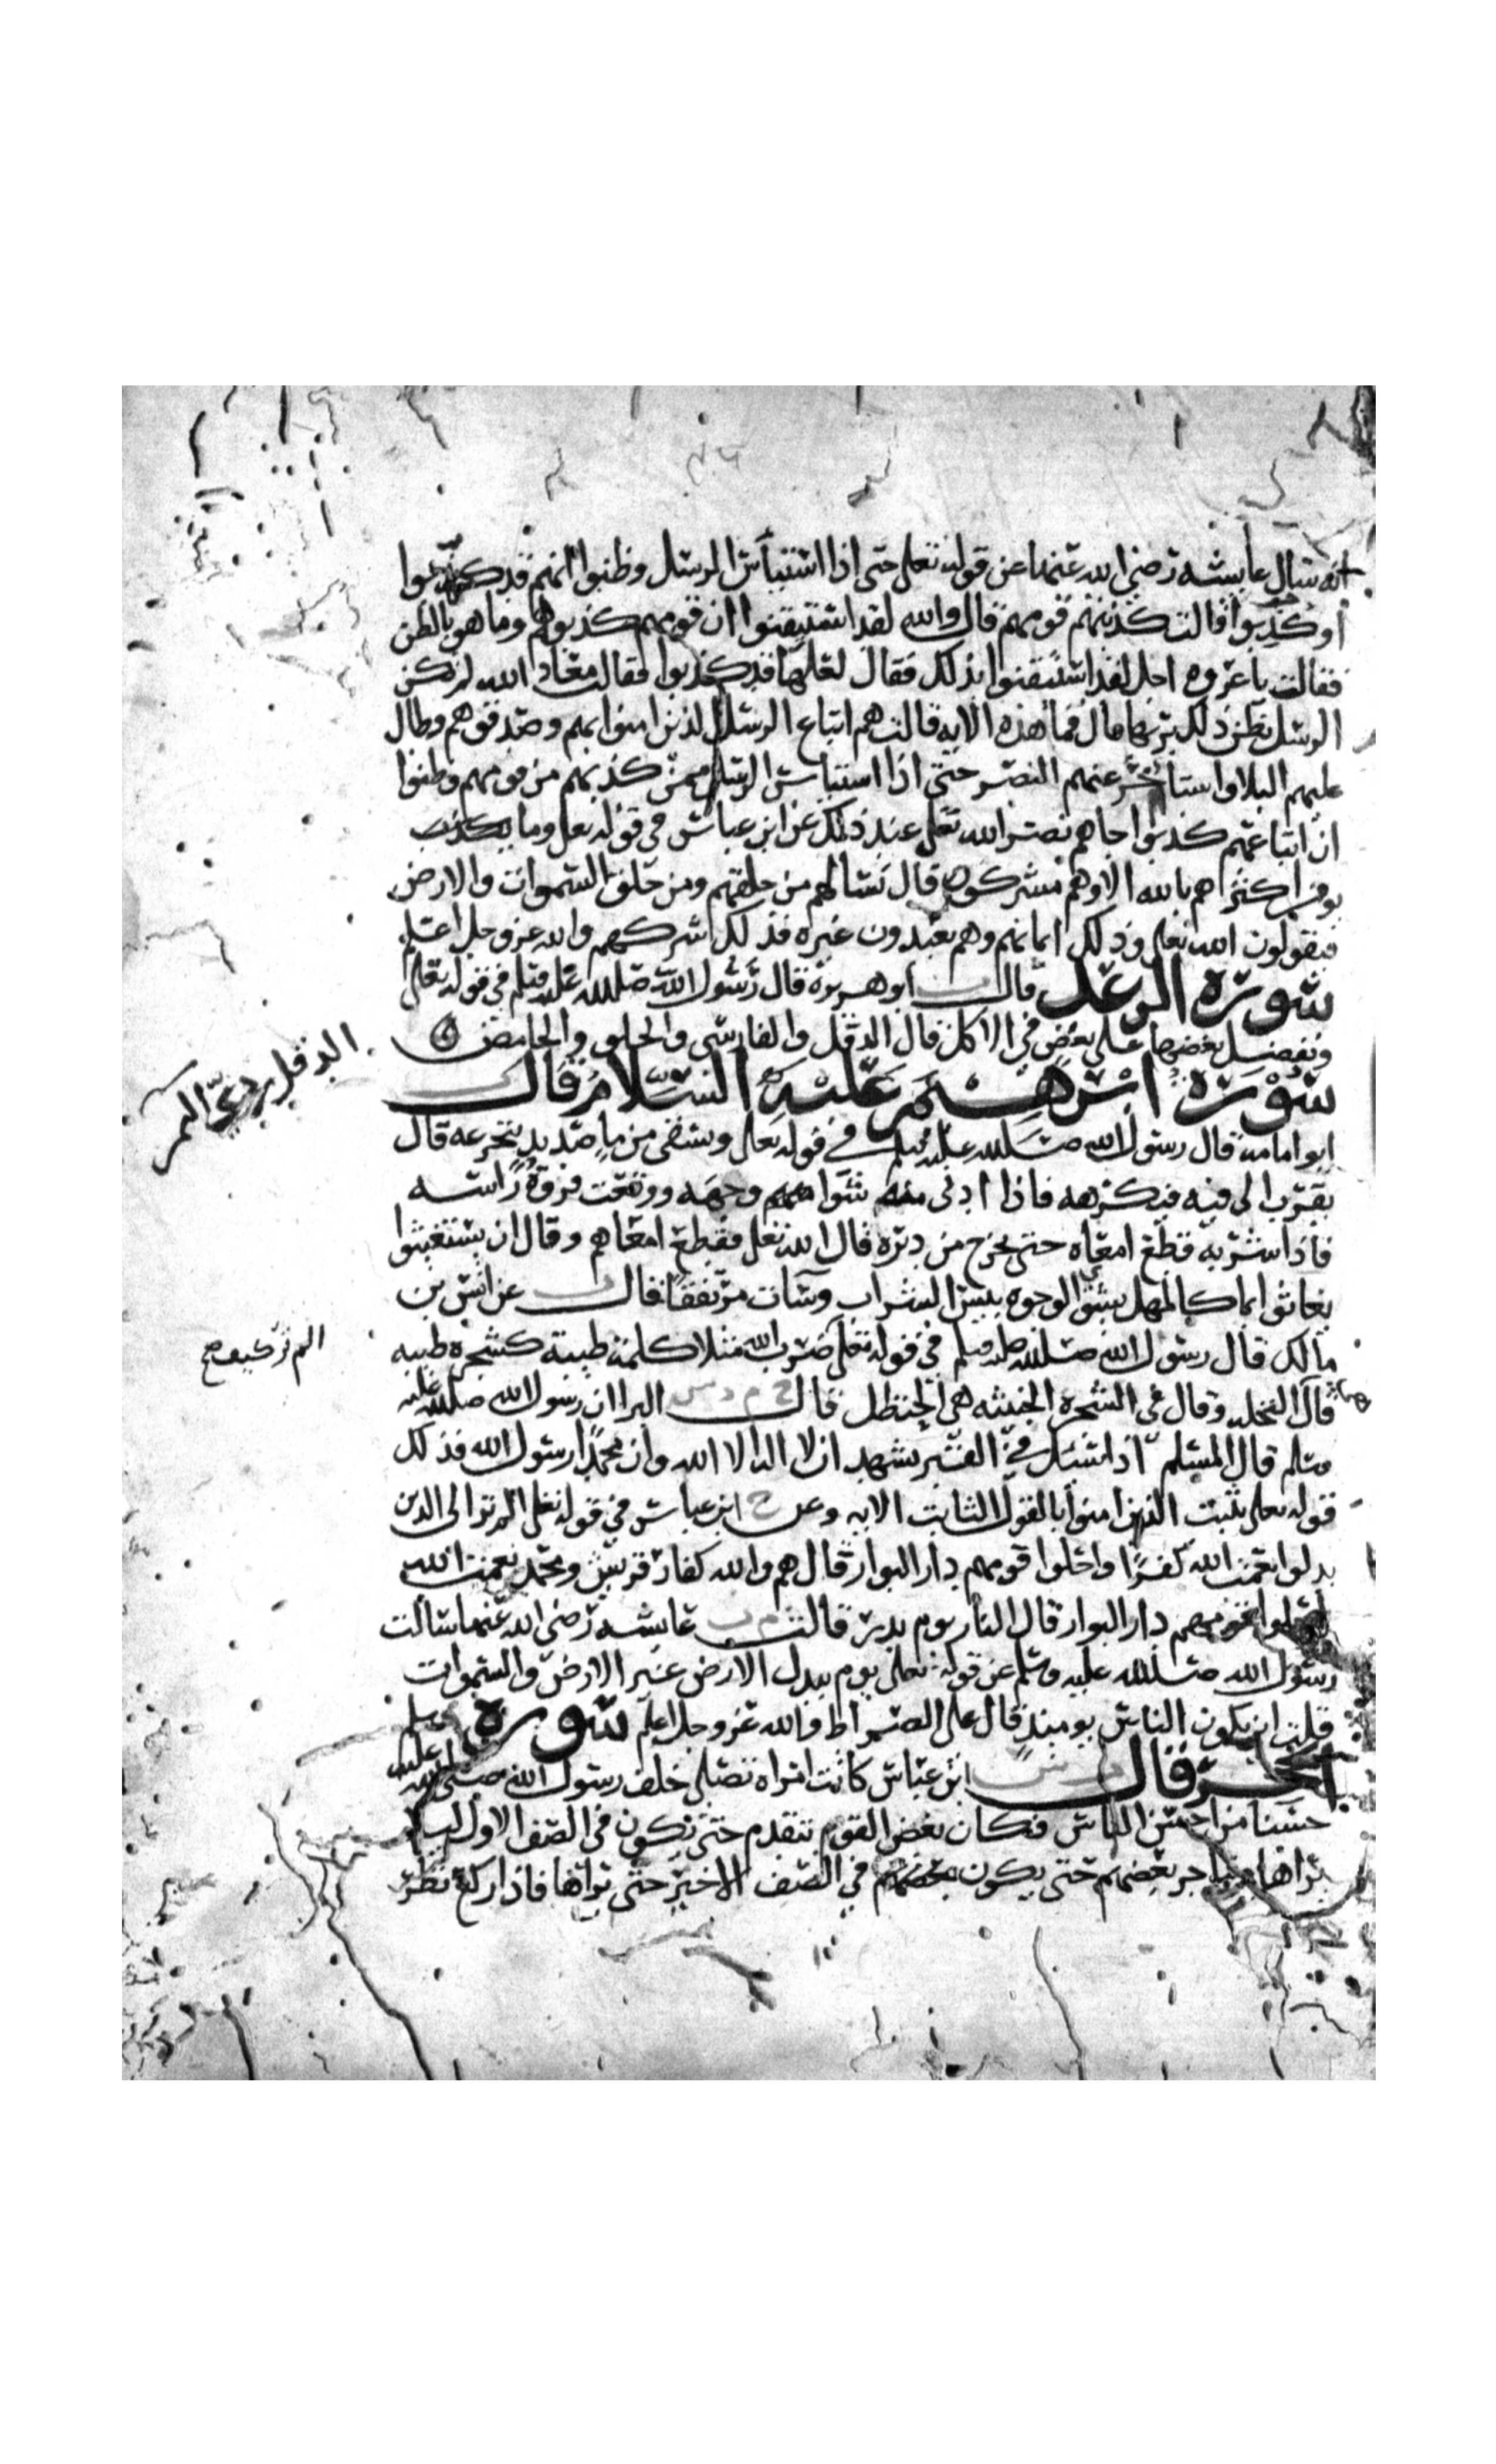 انه سال عايشه رضي الله عنها عن قوله تعلى حتى اذا استيأس الرسل وظنوا انهم قد كذبوا
او كذبوا قالت كذبهم قومهم قال والله لقد استيقنوا ان قومهم كذبوهم وما هو بالظن
فقالت يا عروه اجل لقد استيقنوا بذلك فقال لعلها قد كذبوا فقالت معاد الله لم تكن
الرسل تظن ذلك بربها قال فما هذه الايه قالت هم اتباع الرسل الذين امنوا بهم وصدقوهم وطال
عليهم البلا واستاخر عنهم النصر حتى اذا استياس الرسل ممن كذبهم من قومهم وظنوا
ان اتباعهم كذبوا جاهم نصر الله تعلى عند ذلك عن ابن عباس في قوله تعلى وما
يومن اكثراهم بالله الا وهم مشركون قال تسالهم من خلقهم ومن خلق السموات والارض
فيقولون الله تعلى وذلك ايمانهم وهم يعبدون غيره فذلك شركهم والله عز وجل اعلم
سورة الرعد قال ابو هريرة قال رسول الله صلى الله عليه وسلم في قوله تعلى
ونفضل بعضها على بعض في الاكل قال الدقل والفارسي والحلو والحامض
سورة ابرهيم عليه السلام قال
ابو امامه قال رسول الله صلى الله عليه وسلم في قوله تعلى ويسقى من ما صديد يتجرعه قال
يقرب الى فيه فيكرهه فاذا ادني منه شوا وجهه ووقعت فروة راسه
فاذا شربه قطع امعاه حتى يخرج من دبره قال الله تعلى فقطع امعاهم وقال ان يستغيثوا
يغاثوا بما كالمهل يشوي الوجوه بيس الشراب وسآت مرتفقا قال عن انس بن
مالك قال رسول الله صلى الله عليه وسلم في قوله تعلى ضرب الله مثلا كلمة طيبة كشجره طيبه
الم تر كيف صح
قال النخله وقال في الشجره الخبيثه هي الحنظل قال البرا ان رسول الله صلى الله عليه
وسلم قال المسلم اذا سئل في القبر يشهد ان لا اله الا الله وان محمدا رسول الله فذلك
قوله تعلى يثبت الذين امنوا بالقول الثابت الايه وعن خ ابن عباس في قوله تعلى الم تر الى الذين
بدلوا نعمت الله كفرا واحلوا قومهم دار البوار قال هم والله كفار قريش ومحمد نعمت الله
واحلوا قومهم دار البوار قال النار يوم بدر قالت عايشه رضي الله عنها سالت
رسول الله صلى الله عليه وسلم عن قوله تعلى يوم يبدل الارض غير الارض والسموات
قلت اين يكون الناس يوميذ قال على الصراط والله عز وجل اعلم سورة
الحجر قال ابن عباس كانت امراه تصلي خلف رسول الله صلى الله عليه وسلم
حسنا من احسن الناس فكان بعض القوم يتقدم حتى يكون في الصف الاول ليلا
يراها ويتاخر بعضهم حتى يكون في الصف الاخير حتى يراها فاذا ركع نظر